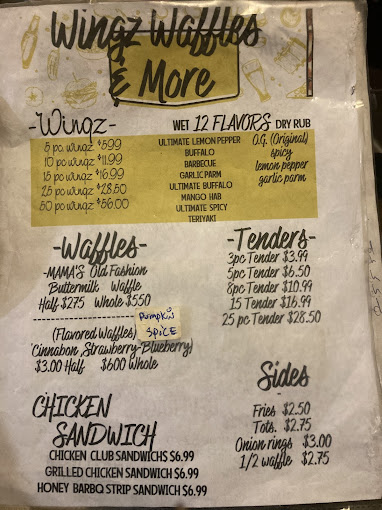 Wingz Waffles
& More
-Wingz-
5 pc wingz $5.99
10 pc wingz $11.99
15 pc wingz $16.99
25 pc wingz $28.50
50 pc wingz $56.00
WET 12 FLAVORS DRY RUB
ULTIMATE LEMON PEPPER
BUFFALO
BARBECUE
GARLIC PARM
ULTIMATE BUFFALO
MANGO HAB
ULTIMATE SPICY
TERIYAKI
O.G. (Original)
spicy
lemon pepper
garlic parm
-Waffles-
-MAMA'S Old Fashion
Buttermilk Waffle
Half $275 Whole $550
Pumpkin
SPICE
(Flavored Waffles)
Cinnabon, Strawberry-Blueberry)
$3.00 Half $600 Whole
-Tenders-
3pc Tender $3.99
5pc Tender $6.50
8pc Tender $10.99
15 Tender $16.99
25 pc Tender $28.50
Sides
Fries $2.50
Tots. $2.75
Onion rings $3.00
1/2 waffle $2.75
CHICKEN
SANDWICH
CHICKEN CLUB SANDWICHS $6.99
GRILLED CHICKEN SANDWICH $6.99
HONEY BARBQ STRIP SANDWICH $6.99